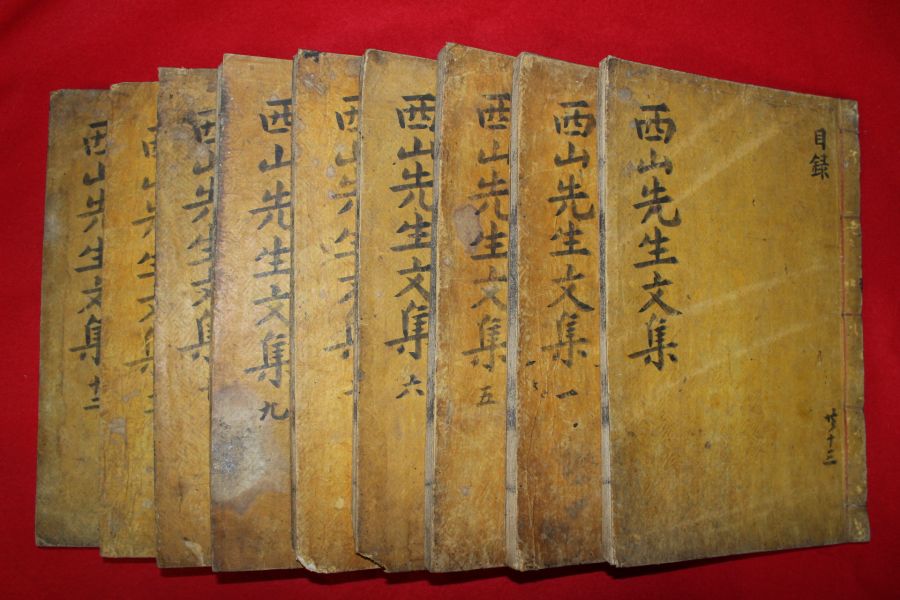 西山先生文集
目録
共十三
西山先生文集
一
西山先生文集
五
西山先生文集
六
西山先生文集
西山先生文集
九
西山先生文集
西山先生文集
西山先生文集
十二